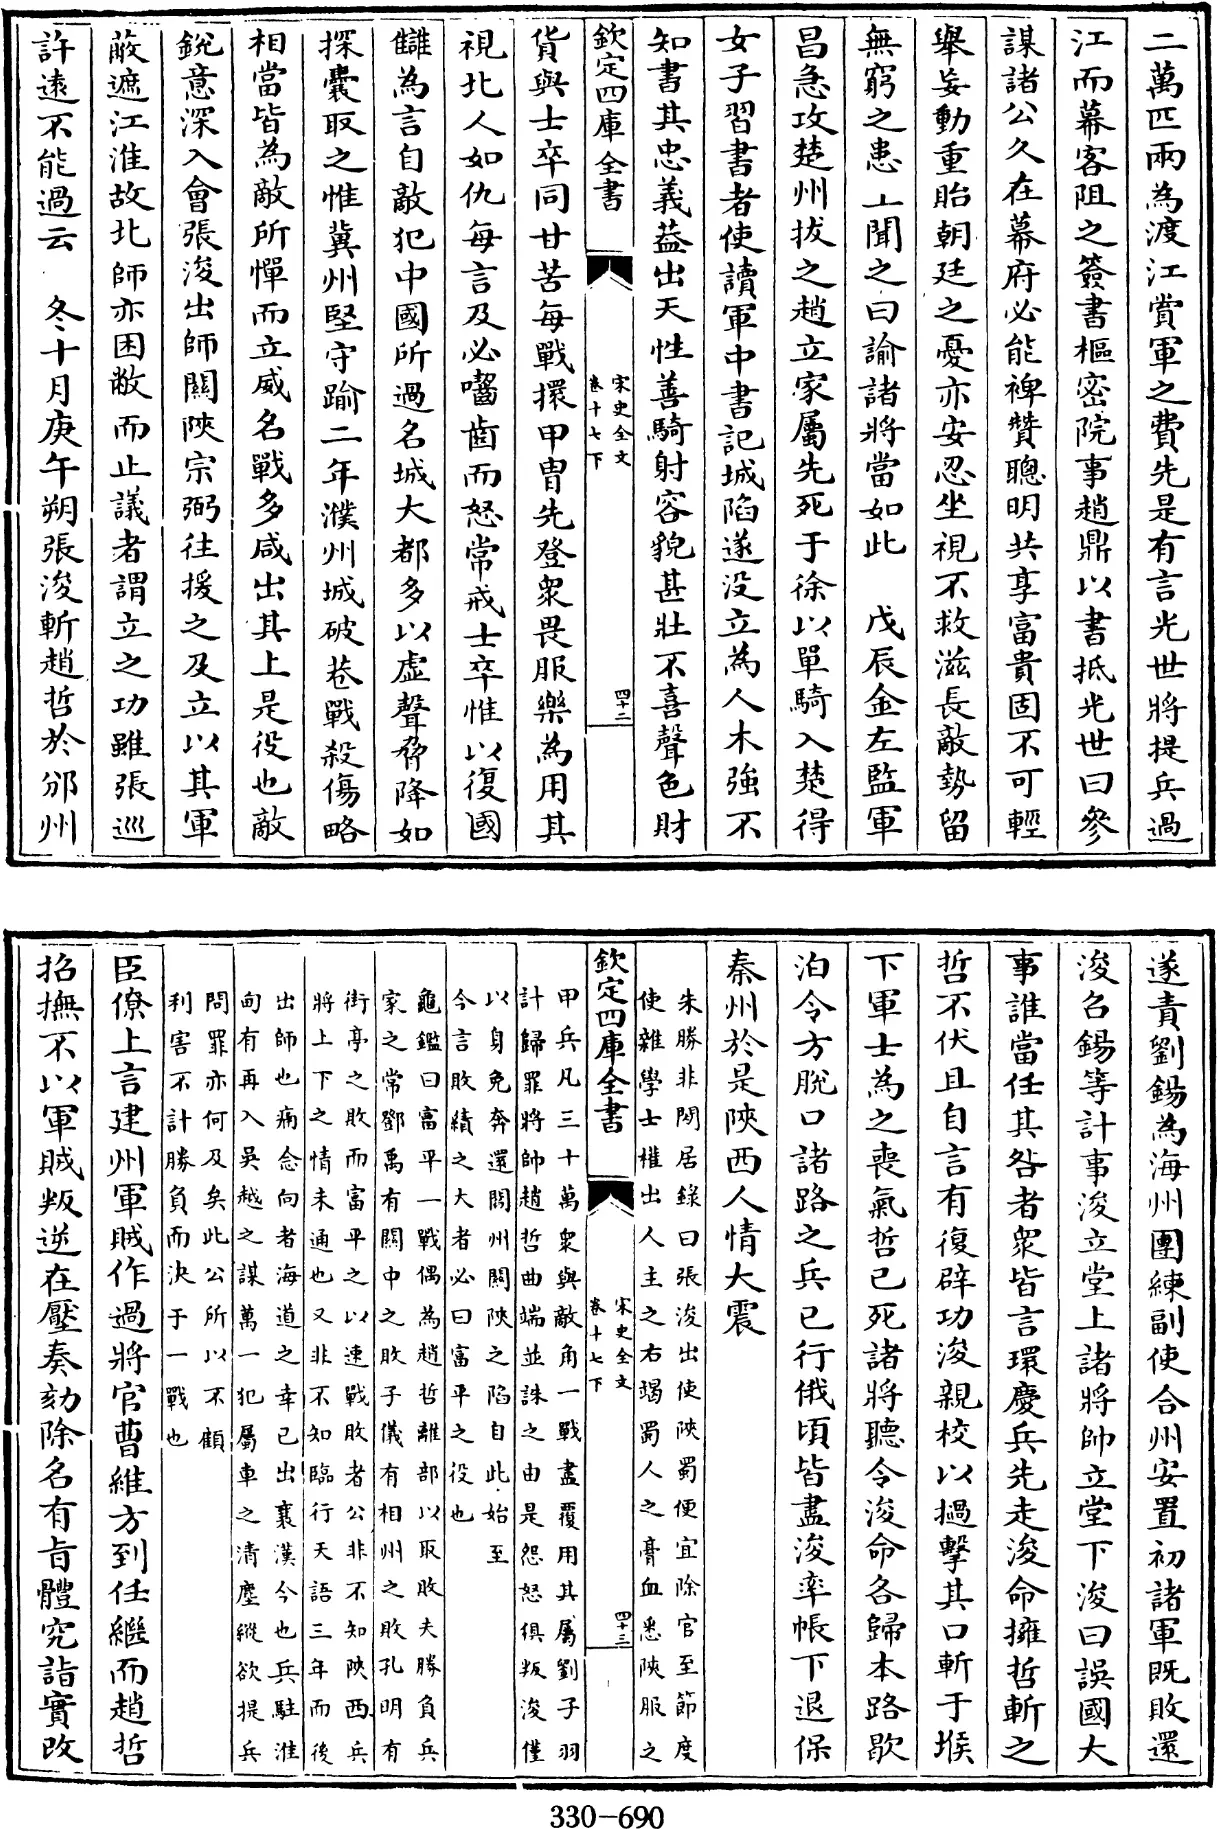 二萬匹兩為渡江賞軍之費先是有言光世將提兵過
江而幕客阻之簽書樞密院事趙鼎以書抵光世曰參
謀諸公久在幕府必能裨贊聰明共享富貴固不可輕
舉妄動重貽朝廷之憂亦安忍坐視不救滋長敵勢留
無窮之患上聞之曰諭諸將當如此　戊辰金左監軍
昌急攻楚州拔之趙立家屬先死于徐以單騎入楚得
女子習書者使讀軍中書記城陷遂没立為人木強不
知書其忠義葢出天性善騎射容貌甚壯不喜聲色財
欽定四庫全書
宋史全文
卷十七下
四十二
貨與士卒同甘苦每戰擐甲胄先登衆畏服樂為用其
視北人如仇每言及必嚙齒而怒常戒士卒惟以復國
讎為言自敵犯中國所過名城大都多以虚聲脅降如
探囊取之惟冀州堅守踰二年濮州城破巷戰殺傷略
相當皆為敵所憚而立威名戰多咸出其上是役也敵
銳意深入會張浚出師關陜宗弼往援之及立以其軍
蔽遮江淮故北師亦困敝而止議者謂立之功雖張巡
許遠不能過云　冬十月庚午朔張浚斬趙哲於邠州
遂責劉錫為海州團練副使合州安置初諸軍既敗還
浚召錫等計事浚立堂上諸將帥立堂下浚曰誤國大
事誰當任其咎者衆皆言環慶兵先走浚命擁哲斬之
哲不伏且自言有復辟功浚親校以撾擊其口斬于堠
下軍士為之喪氣哲已死諸將聽令浚命各歸本路歇
泊令方脫口諸路之兵已行俄頃皆盡浚率帳下退保
秦州於是陜西人情大震
朱勝非閒居錄曰張浚出使陜蜀便宜除官至節度
使雜學士權出人主之右竭蜀人之膏血悉陜服之
欽定四庫全書
宋史全文
卷十七下
四十三
甲兵凡三十萬衆與敵角一戰盡覆用其屬劉子羽
計歸罪將帥趙哲曲端並誅之由是怨怒俱叛浚僅
以身免奔還閬州關陜之陷自此始至
今言敗績之大者必曰富平之役也
龜鑑曰富平一戰偶為趙哲離部以取敗夫勝負兵
家之常鄧禹有關中之敗子儀有相州之敗孔明有
街亭之敗而富平之以速戰敗者公非不知陜西兵
將上下之情未通也又非不知臨行天語三年而後
出師也痛念向者海道之幸已出襄漢今也兵駐淮
甸有再入吳越之謀萬一犯屬車之清塵縱欲提兵
問罪亦何及矣此公所以不顧
利害不計勝負而決于一戰也
臣僚上言建州軍賊作過將官曹維方到任繼而趙哲
招撫不以軍賊叛逆在壓奏劾除名有旨體究詣實改